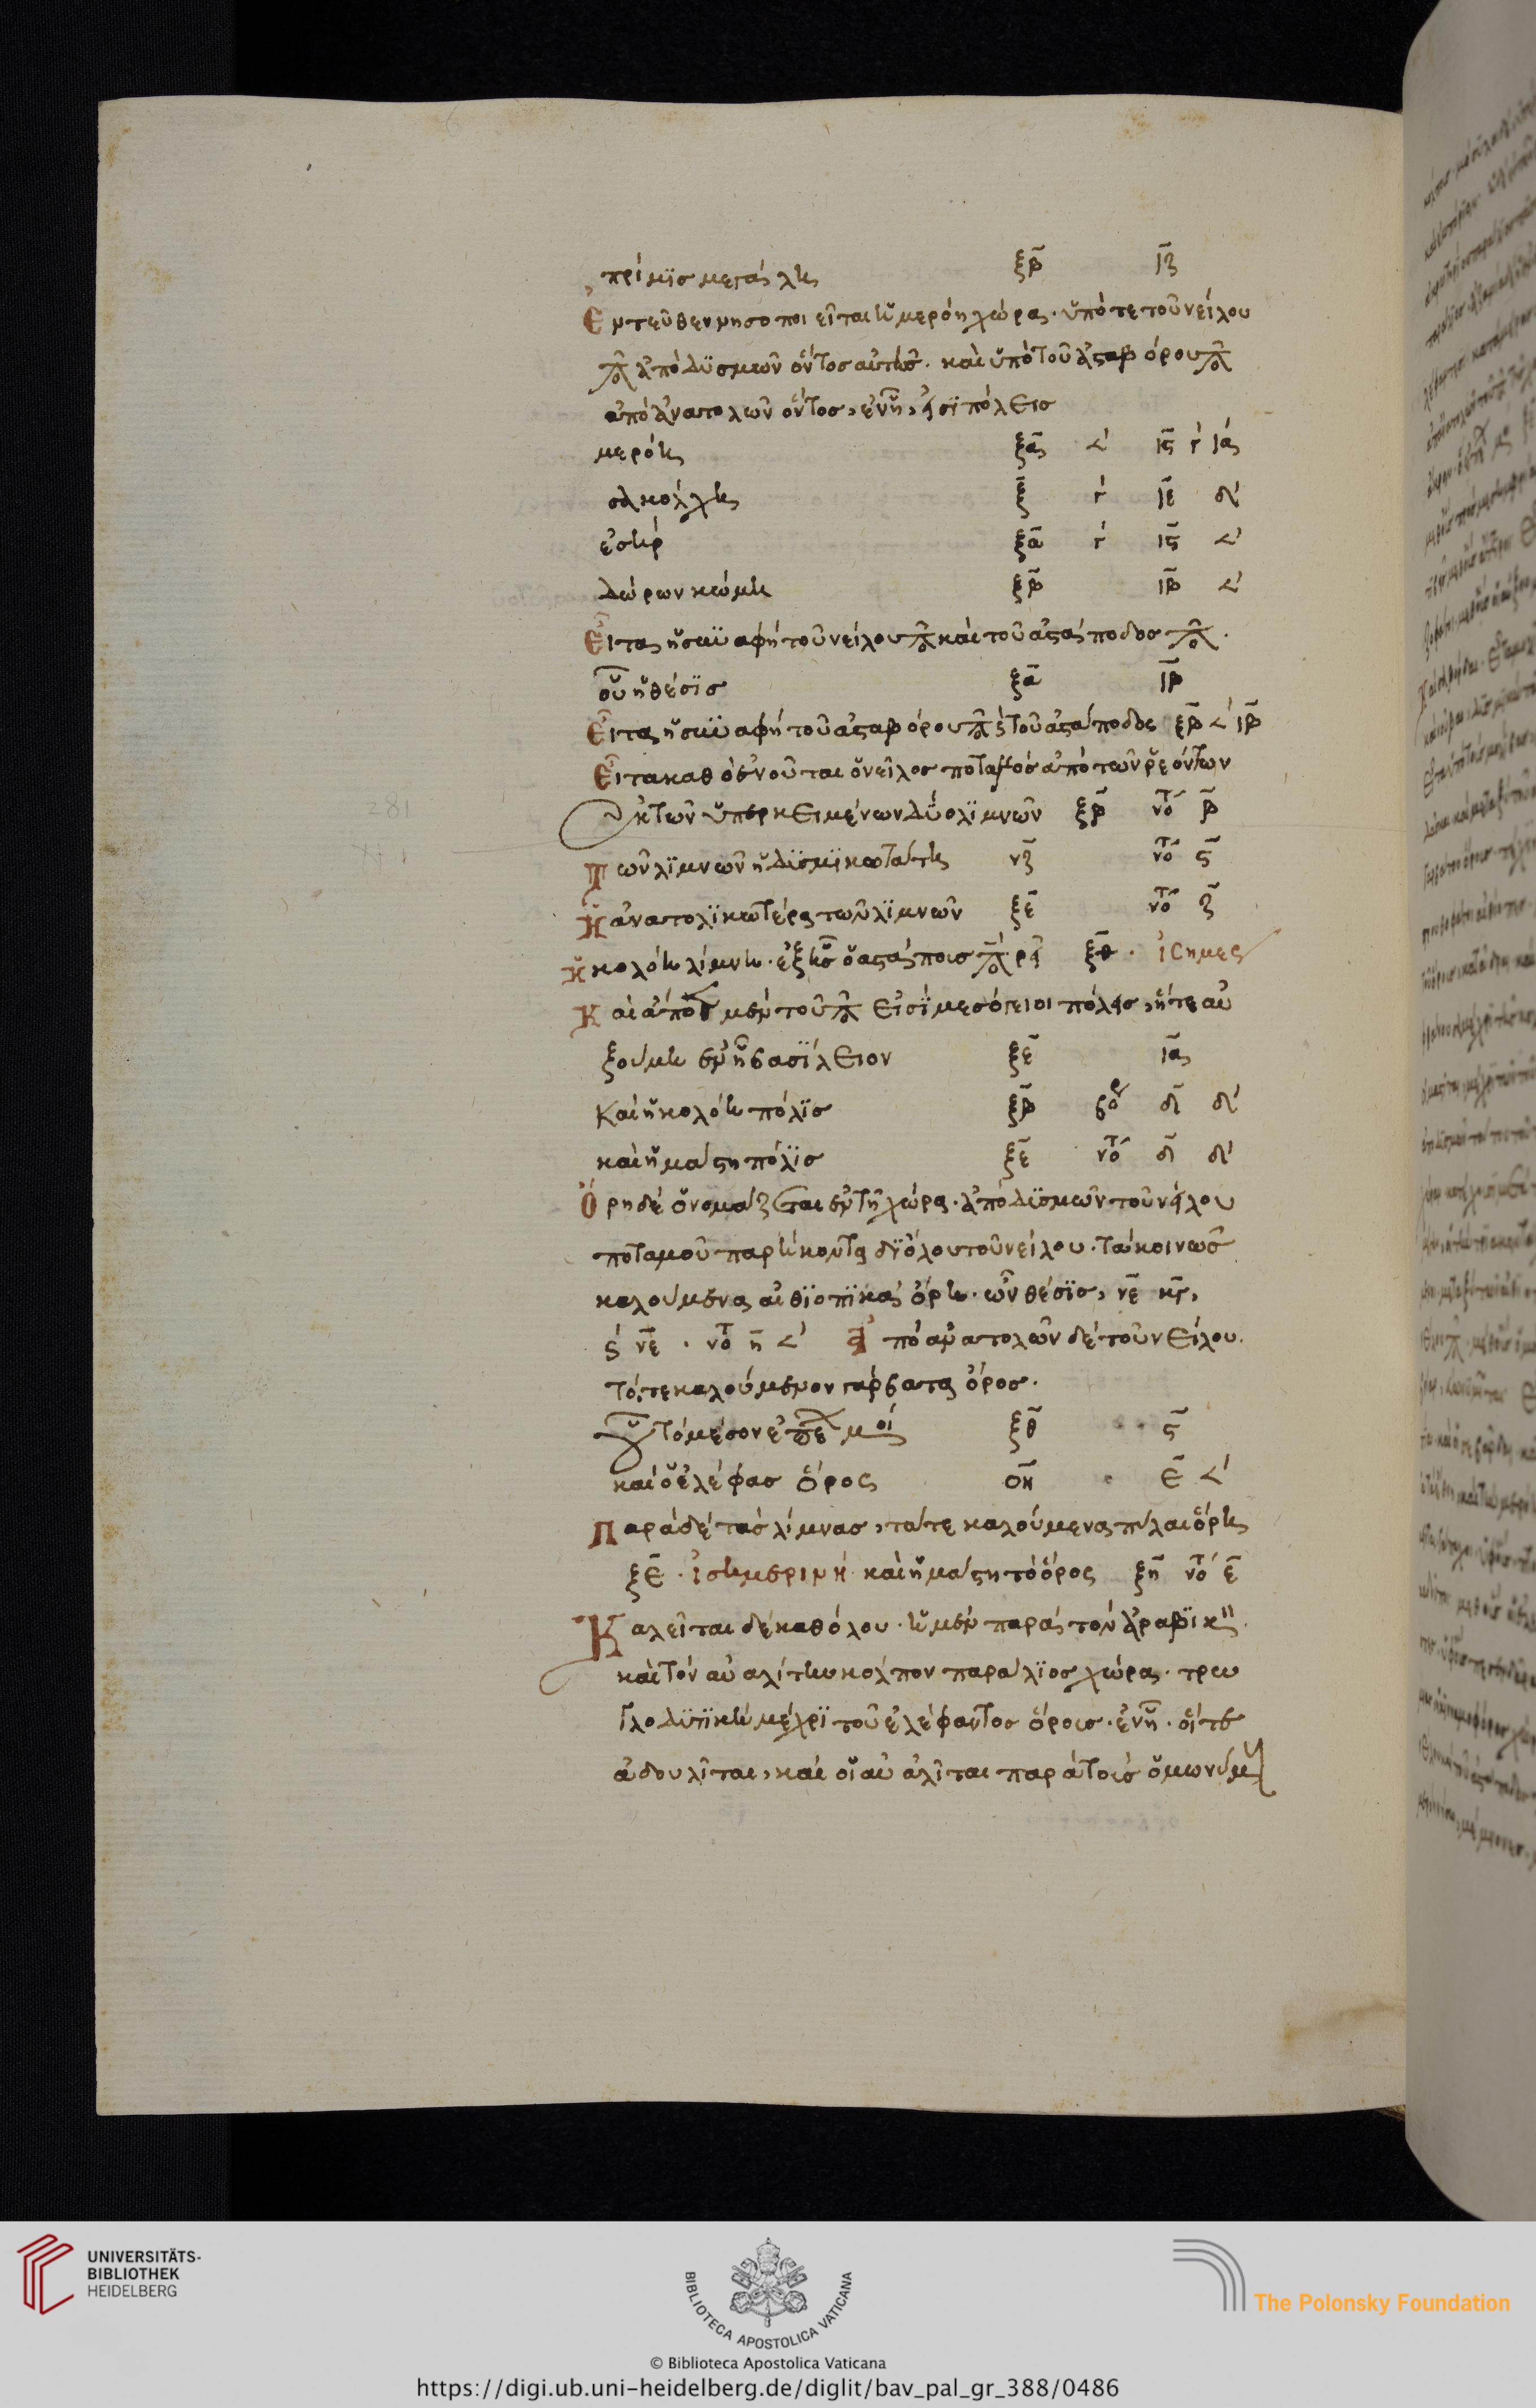 πρίμϊσ μεγάλη ξβ ιζ
Εντεῦθεν νησοποιεῖται ἡ μερόη χώρα. ὑπό τε τοῦ νείλου
ἀπὸ δϋσμῶν ὄντοσ αὐτῆσ. καὶ ὑπὸ τοῦ ἀσταβόρου
ἀπὸ ἀνατολῶν ὄντοσ, ἐν ᾗ, εἰσὶ πόλεισ
μερόη ξα ιϛ γ ιβ
σακόλχη ξ γ ιε δ
ἐσὴρ ξα γ ιϛ
δώρων κώμη ξβ ιβ
Εἶτα ἡ σϋναφὴ τοῦ νείλου καὶ τοῦ ἀστάποδοσ
οὗ ἡ θέσϊσ ξα ιβ
Εἶτα ἡ σϋναφὴ τοῦ ἀσταβόρου τοῦ ἀστάποδος ξβ ιβ
Εἶτα καθ ὃ ἑνοῦται ὁ νεῖλος ποταμὸς ἀπὸ τῶν ῥεόντων
ἐκ τῶν ὑπερκειμένων δύο λϊμνῶν ξβ νο β
Τῶν λϊμνῶν ἡ δϋσμϊκωτάτη νζ νο ϛ
Ἡ ἀνατολϊκωτέρα τῶν λϊμνῶν ξε νο ζ
ἡ κολόη λίμνη. ἐξ ἧσ ὁ ἀστάπουσ ξθ. ἰσημεσ
Καὶ ἀπὸ μὲν τοῦ εἰσὶ μεσόγειοι πόλεισ, ἥτε αὐ
ξούμη ἐν ᾗ βασίλειον ξε ια
Καὶ ἡ κολόη πόλϊσ ξβ βο δ δ
καὶ ἡ μάστη πόλϊσ ξε νο δ δ
Ὄρη δὲ ὀνομάζεται ἐν τῇ χώρα. ἀπὸ δϋσμῶν τοῦ νείλου
ποταμοῦ παρήκοντα δϊόλου τοῦ νείλου. τὰ κοινῶσ
καλούμενα αἰθϊοπϊκὰ ὄρη. ὧν θέσϊσ, νε κγ,
νε. νο η Ἀπὸ ἀνατολῶν δὲ τοῦ νείλου.
τό, τε καλούμενον γάρβατα ὄρος.
οὗ τὸ μέσον ἐπέχει μοί ξθ ϛ
καὶ ὁ ἐλέφασ ὄρος οη ε
Παρὰ δὲ τὰσ λίμνασ, τά τε καλούμενα πύλαι ὄρη
ξε. ἰσημερινὴ καὶ ἡ μάστη τὸ ὄρος ξη νο ε
Καλεῖται δὲ καθόλου. ἡ μὲν παρὰ τὸν ἀραβϊκ
καὶ τὸν αὐαλίτην κόλπον παράλϊος χώρα. τρω
γλοδϋτϊκὴ μέχρϊ τοῦ ἐλέφαντοσ ὄρουσ. ἐν ᾗ. οἵ τε
ἀδουλῖται, καὶ οἱ αὐαλῖται παρὰ τοῖσ ὁμωνύμ
UNIVERSITÄTS-
BIBLIOTHEK
HEIDELBERG
BIBLIOTECA APOSTOLICA VATICANA
The Polonsky Foundation
© Biblioteca Apostolica Vaticana
https://digi.ub.uni-heidelberg.de/diglit/bav_pal_gr_388/0486